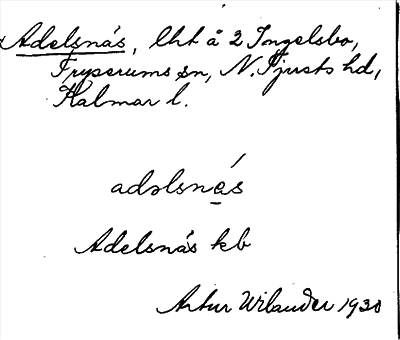 Adelsnás, lht å 2 Ingelsbo,
Tryserums sn, N. Tjusts hd,
Kalmar l.
adəlsnɛ́s
Adelsnás kb
Artur Wilander 1930